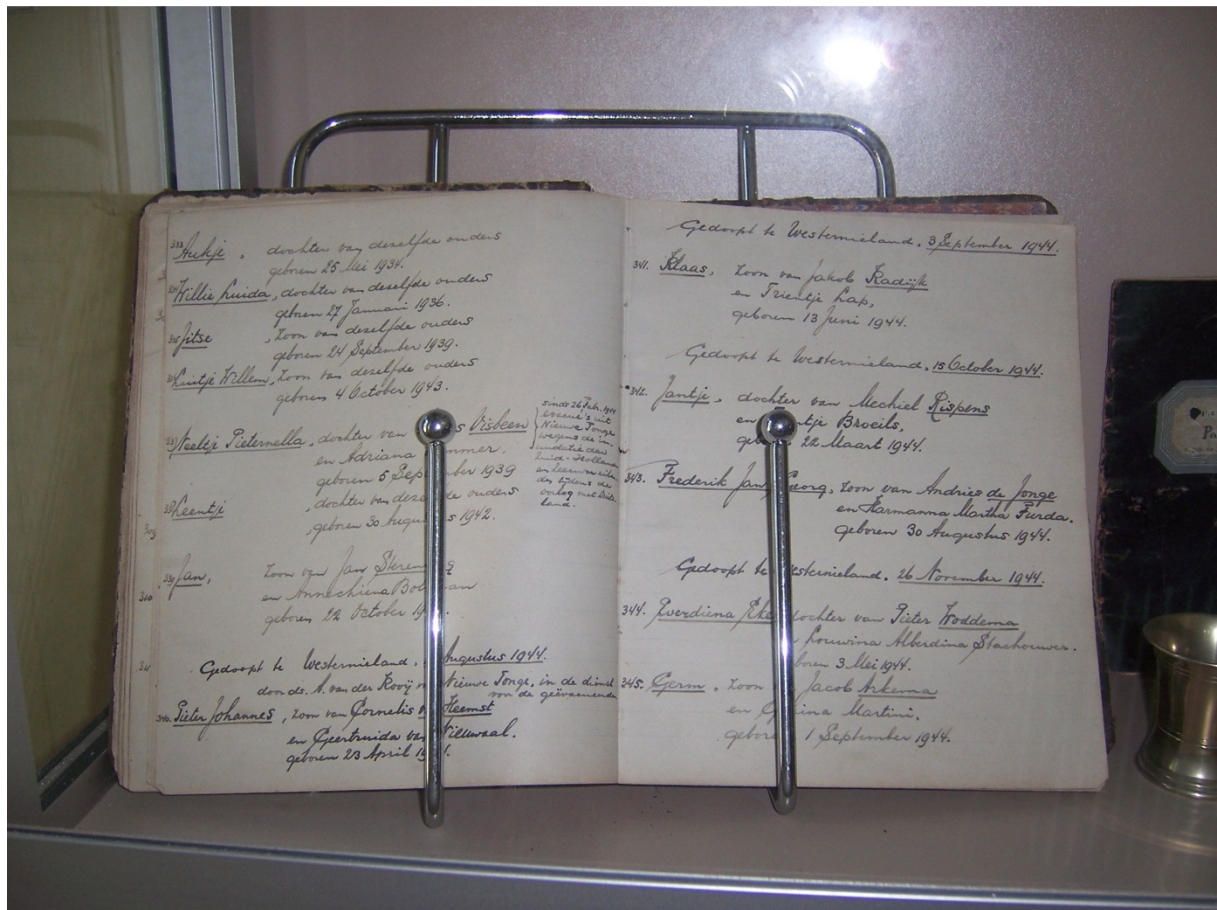 333 Aukje, dochter van dezelfde ouders
geboren 25 Mei 1934.
334 Willie Luida, dochter van dezelfde ouders
geboren 27 Januari 1936.
335 Jitse, zoon van dezelfde ouders
geboren 24 September 1939.
Luitje Willem, zoon van dezelfde ouders
geboren 4 October 1943.
337 Neeltje Pieternella, dochter van s Visbeen
en Adriana mmer.
geboren 5 September 1939
338 Leentje dochter van dezelfde ouders
geboren 30 Augustus 1942.
sinds 26 Febr. 1944
evacué's uit
Nieuwe Tonge
wegens de in-
undatie der
Zuid-Holland
en Zeeuwse eilan-
den tijdens de
oorlog met Duits-
land.
339 Jan, zoon van Jan
en Annechiena
geboren 22 October
Gedoopt te Westernieland, Augustus 1944.
door ds. A. van der Kooij Nieuwe Tonge, in de dienst
voor de geëvacueerden
340. Pieter Johannes, zoon van Cornelis v Heemst
en Geertruida van Nieuwaal.
geboren 23 April
Gedoopt te Westernieland. 3 September 1944.
341. Klaas, zoon van Jakob Radijk
en Trientje Lap,
geboren 13 Juni 1944.
Gedoopt te Westernieland, 15 October 1944.
342. Jantje, dochter van Mechiel Rispens
en ntje Broeils,
geboren 22 Maart 1944.
343. Frederik Jan Georg, zoon van Andries de Jonge
en Harmanna Martha Furda.
geboren 30 Augustus 1944.
Gedoopt te Westernieland. 26 November 1944.
344. Everdiena dochter van Pieter Woddema
Louwina Alberdina Stachouwer.
geboren 3 Mei 1944.
345. Germ, zoon Jacob Arkema
en ina Martini.
geboren 1 September 1944.